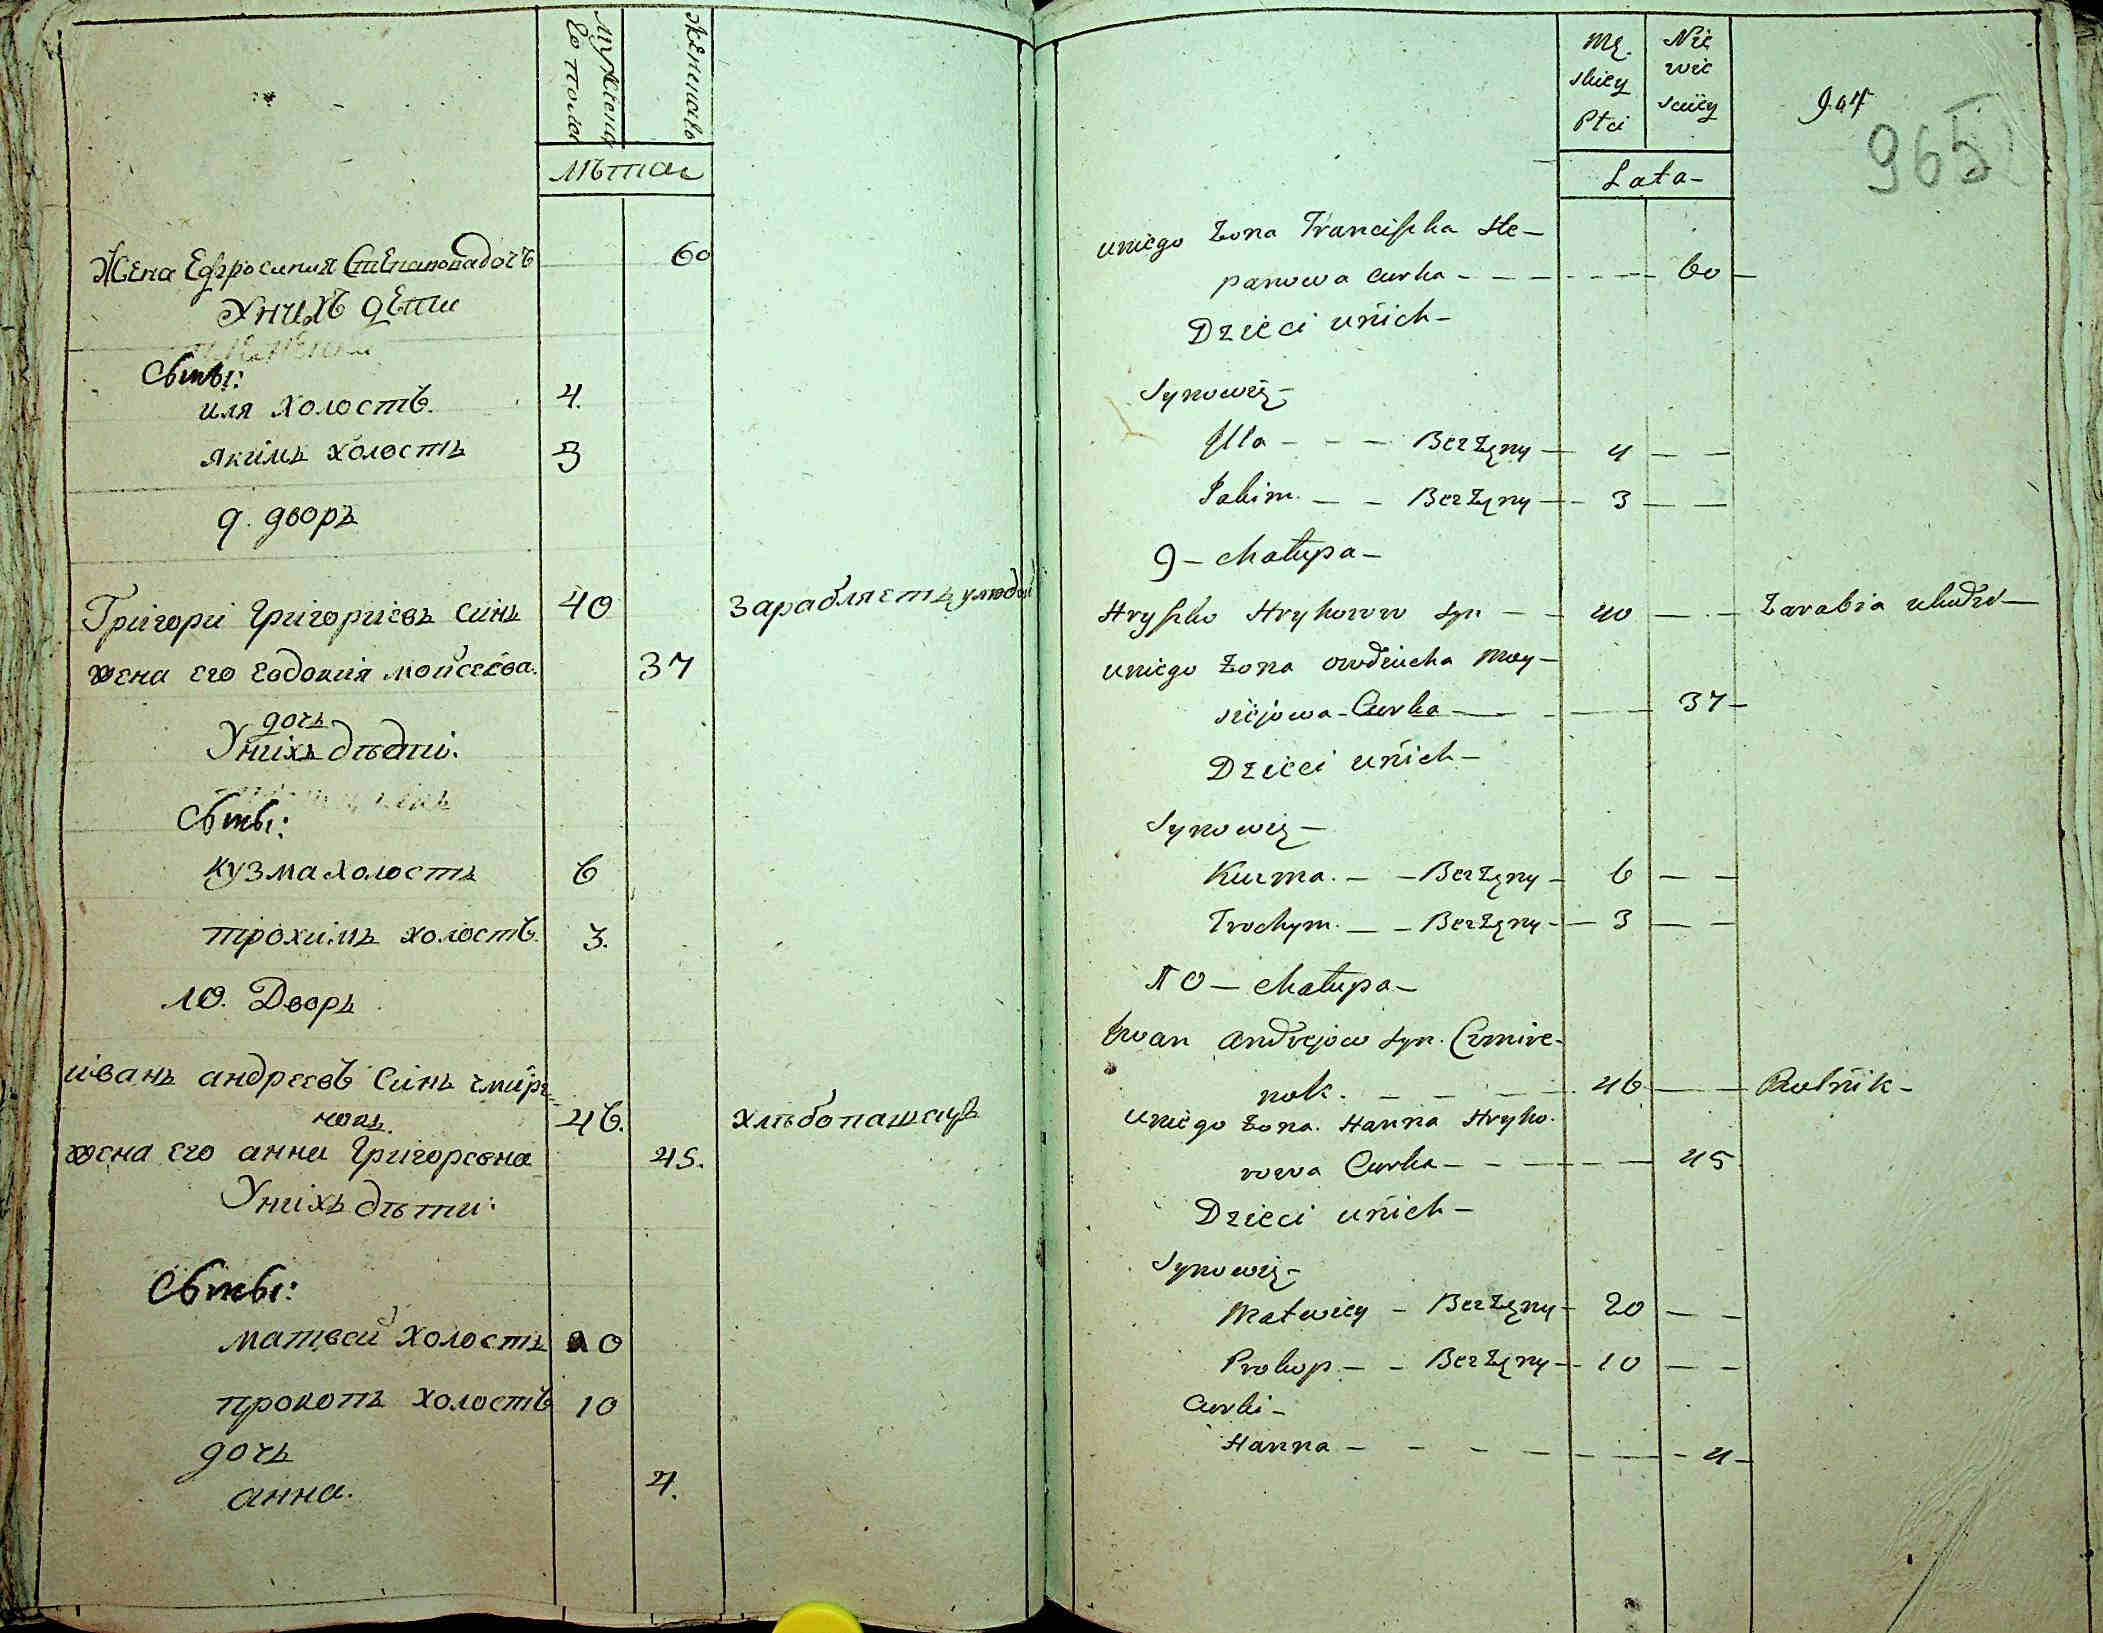 Мужеска
го пола
Женскаго
Лѣта
Жена Ефросиния Степановадочъ 60
Унихъ дети
Сыны:
иля холостъ. 4.
якимъ холостъ 3
9. дворъ
Григори Григориевъ синъ 40 зарабляетъ улюдей
жена его евдокия мойсеева. 37
дочь
Унихъ дѣти.
Сыны:
кузма холостъ 6
трохимъ холостъ. 3.
10. Дворъ
иванъ андреевъ синъ чмире=
нокъ. 46. хлѣбопашецъ
жена его анна Григоревна 45.
Унихъ дѣти:
Сыны:
матвей холостъ 20
прокопъ холостъ 10
дочь
анна. 4.
Mę
skiey
Płci
Nie
wie
sciey
Lata
964
965
uniego Żona Franciszka Ste-
panowa curka - - - - - - - 60 -
Dzieci unich -
Synowie -
Illa - - - Berżęny - 4 - -
Jakim. - - Berżęny - 3 - -
9 - chałupa -
Hryszko Hrykorow syn - - 40 - - - Zarabia uludzi -
uniego Żona owdziucha Moy-
siejowa - Curka - - - - 37 -
Dzieci unich -
Synowie -
Kuzma. - - Berżęny - 6 - -
Trochym. - - Berżęny - 3 - -
10 - chałupa -
Iwan andrejow syn. Czmire-
nok. - - - - 46 - - Rolnik -
uniego Żona. Hanna Hryho-
rowa Curka - - - - - 45
Dzieci unich -
Synowie -
Matwiey - Berżęny - 20 - -
Prokop - - Berżęny - 10 - -
Curki -
Hanna - - - - - - - 4 -